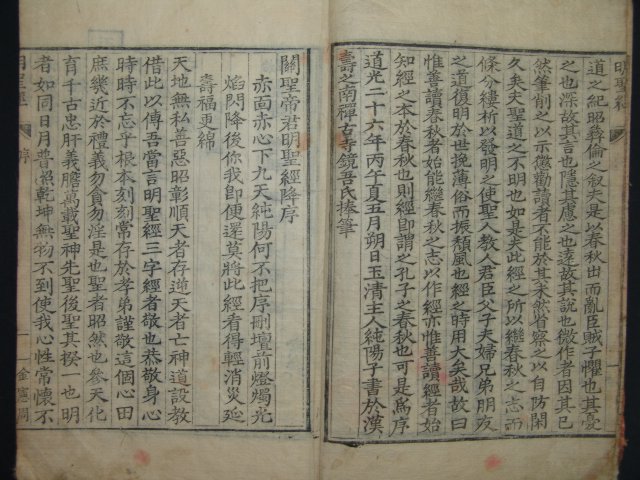 明聖經
道之紀昭彝倫之叙夫是以春秋出而亂臣賊子懼也其憂
之也深故其言也隱其慮之也遠故其說也微作者因其已
然筆削之以示懲勸讀者不能於其未然省察之以自防閑
久矣夫聖道之不明也如是夫此經之所以繼春秋之志而
條分縷析以發明之使聖人教人君臣父子夫婦兄弟朋友
之道復明於世挽薄俗而振頹風也經之時用大矣哉故曰
惟善讀春秋者始能繼春秋之志以作經亦惟善讀經者始
知經之本於春秋也則經即謂之孔子之春秋也可是爲序
道光二十六年丙午夏五月朔日玉清主人純陽子書於漢
壽之南禪古寺鏡吾氏捧筆
關聖帝君明聖經降序
赤面赤心下九天純陽何不把序刪壇前燈燭光
焰閃降後你我即便還莫將此經看得輕消災延
壽福更綿
天地無私善惡昭彰順天者存逆天者亡神道設教
借此以傳吾當言明聖經三字經者敬也恭敬身心
時時不忘乎根本刻刻當存於孝弟謹敬這個心田
庶幾近於禮義勿貪勿淫是也聖者昭然也參天化
育千古忠肝義膽萬載聖神先聖後聖其揆一也明
者如同日月普照乾坤無物不到使我心性常懷不
明聖經
序
一